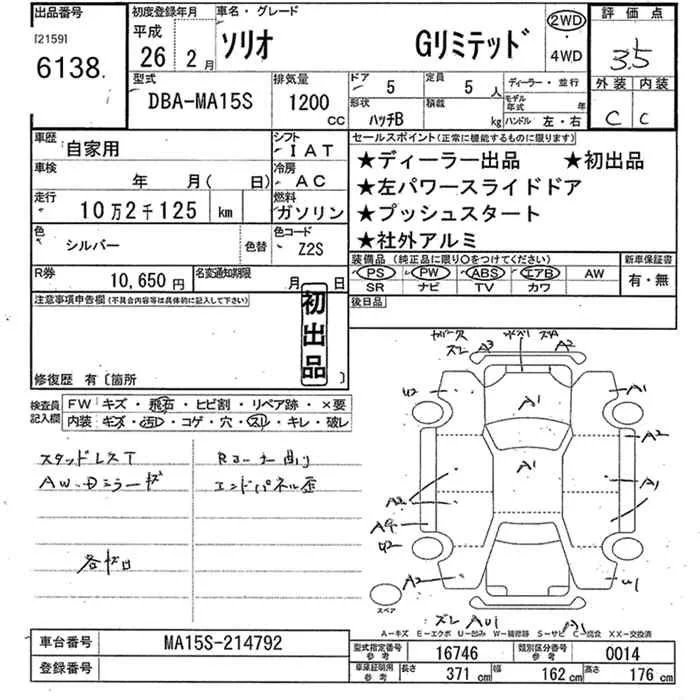 出品番号
[2159]
6138.
初度登録年月
平成
26 年 2 月
車名・グレード
ソリオ Gリミテッド
2WD
・
4WD
評価点
3.5
外装 内装
C C
型式
DBA-MA15S
排気量
1200 CC
ドア 5
定員 5 人
形状 ハッチB
積載 kg
ディーラー・並行
モデル年式 年
ハンドル 左・右
車歴 自家用
シフト IAT
車検 年 月( 日)
冷房 AC
走行 10万2千125 km
燃料 ガソリン
色 シルバー 色替
色コード Z2S
R券 10,650 円
名変通知期限 月 日
セールスポイント(正常に機能するものに限ります)
★ディーラー出品 ★初出品
★左パワースライドドア
★プッシュスタート
★社外アルミ
装備品(純正品に限り○をつけてください)
新車保証書
PS PW ABS エアB AW
SR ナビ TV カワ
有・無
後日品
注意事項申告欄(不具合内容等は具体的に記入して下さい)
初出品
修復歴 有〔箇所 〕
検査員記入欄
FW キズ・飛石・ヒビ割・リペア跡・×要
内装 キズ・汚レ・コゲ・穴・スレ・キレ・破レ
スタッドレスT
Rコーナー曲り
AW・Dミラーキズ
エンドパネル歪
ズレ A3 A2
U2 A1 A1
A2
A1 A1
A2
U2
A2 U1
スペア
ズレ AU1 A1
A-キズ E-エクボ U-凹み W-補修跡 S-サビ C-腐食 XX-交換済
車台番号 MA15S-214792
登録番号
型式指定番号 参考 16746
類別区分番号 参考 0014
車庫証明用 参考 長さ 371 cm 幅 162 cm 高さ 176 cm